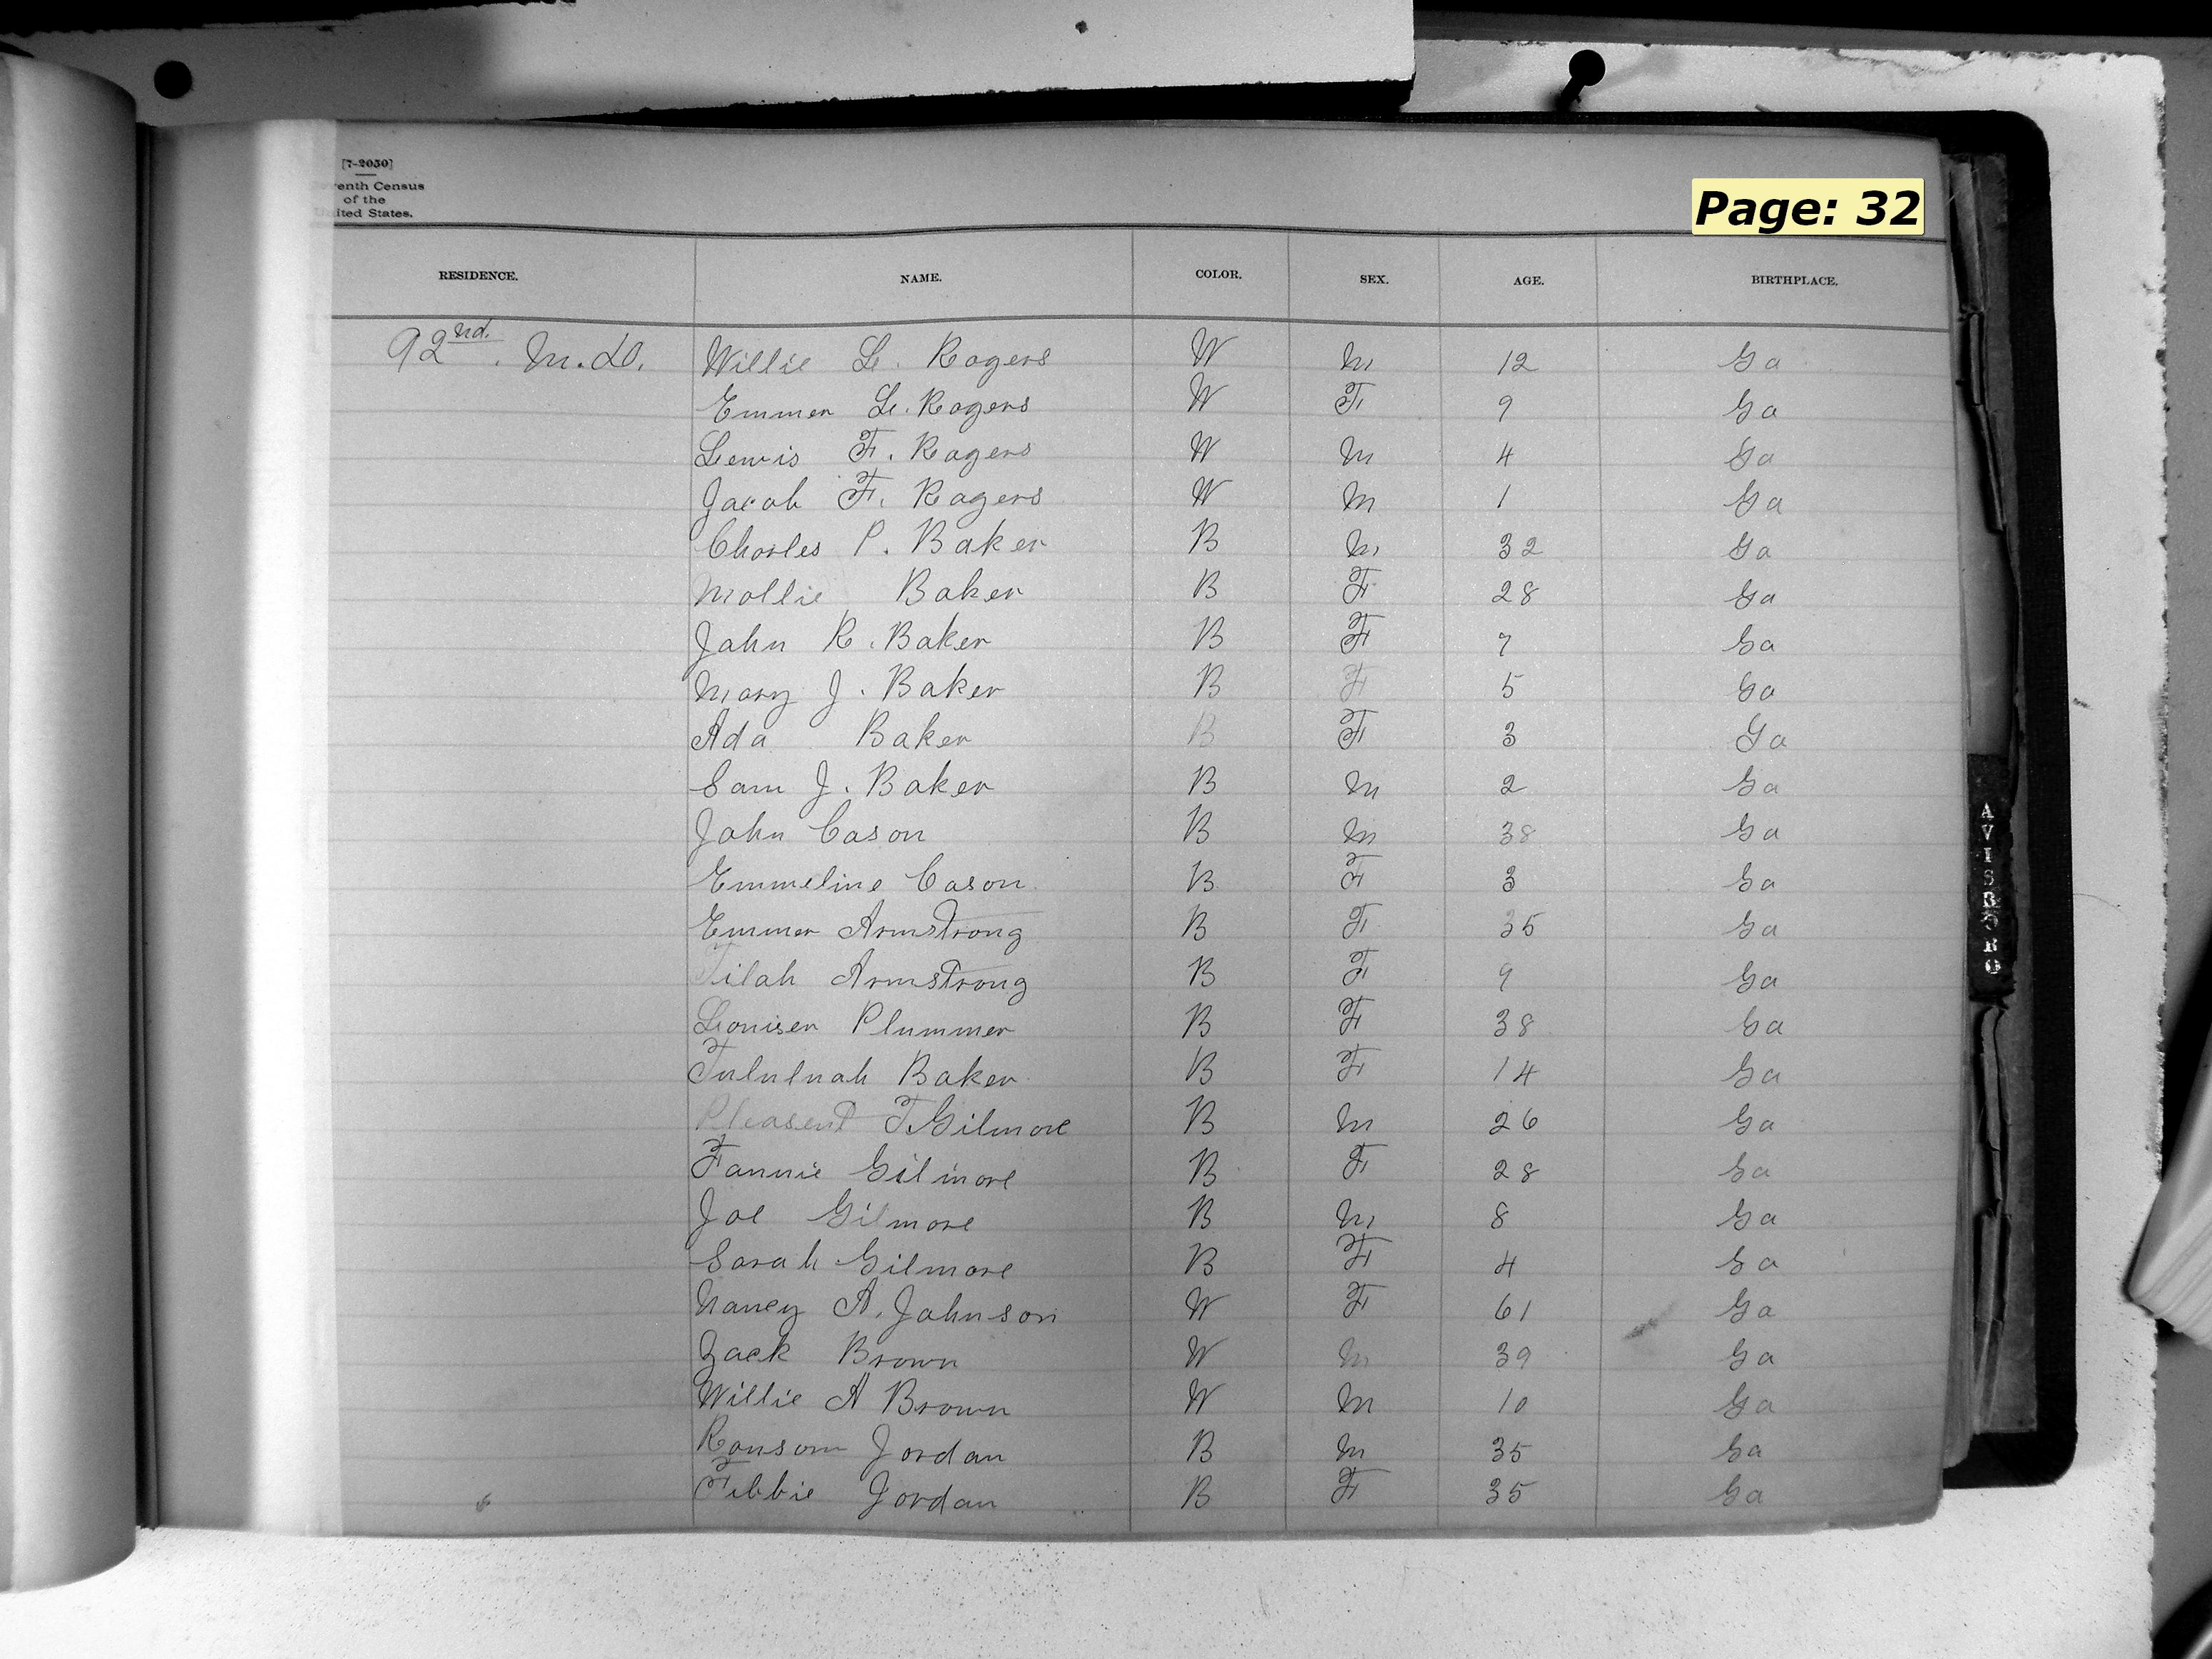 [7-2050]
enth Census
of the
United States.
Page: 32
RESIDENCE. NAME. COLOR. SEX. AGE. BIRTHPLACE.
92nd. M.D. Willie L. Rogers W M 12 Ga
Emmer L. Rogers W F 9 Ga
Lewis F. Rogers W M 4 Ga
Jacob F. Rogers W M 1 Ga
Charles P. Baker B M 32 Ga
Mollie Baker B F 28 Ga
John R. Baker B F 7 Ga
Mary J. Baker B F 5 Ga
Ada Baker B F 3 Ga
Sam J. Baker B M 2 Ga
John Cason B M 38 Ga
Emmeline Cason B F 3 Ga
Emmer Armstrong B F 35 Ga
Tilah Armstrong B F 9 Ga
Louiser Plummer B F 38 Ga
Tululuah Baker B F 14 Ga
Pleasent T. Gilmore B M 26 Ga
Fannie Gilmore B F 28 Ga
Joe Gilmore B M 8 Ga
Sarah Gilmore B F 4 Ga
Nancy A. Johnson W F 61 Ga
Zack Brown W M 39 Ga
Willie A Brown W M 10 Ga
Ransom Jordan B M 35 Ga
Fibbie Jordan B F 35 Ga
AVISBORO